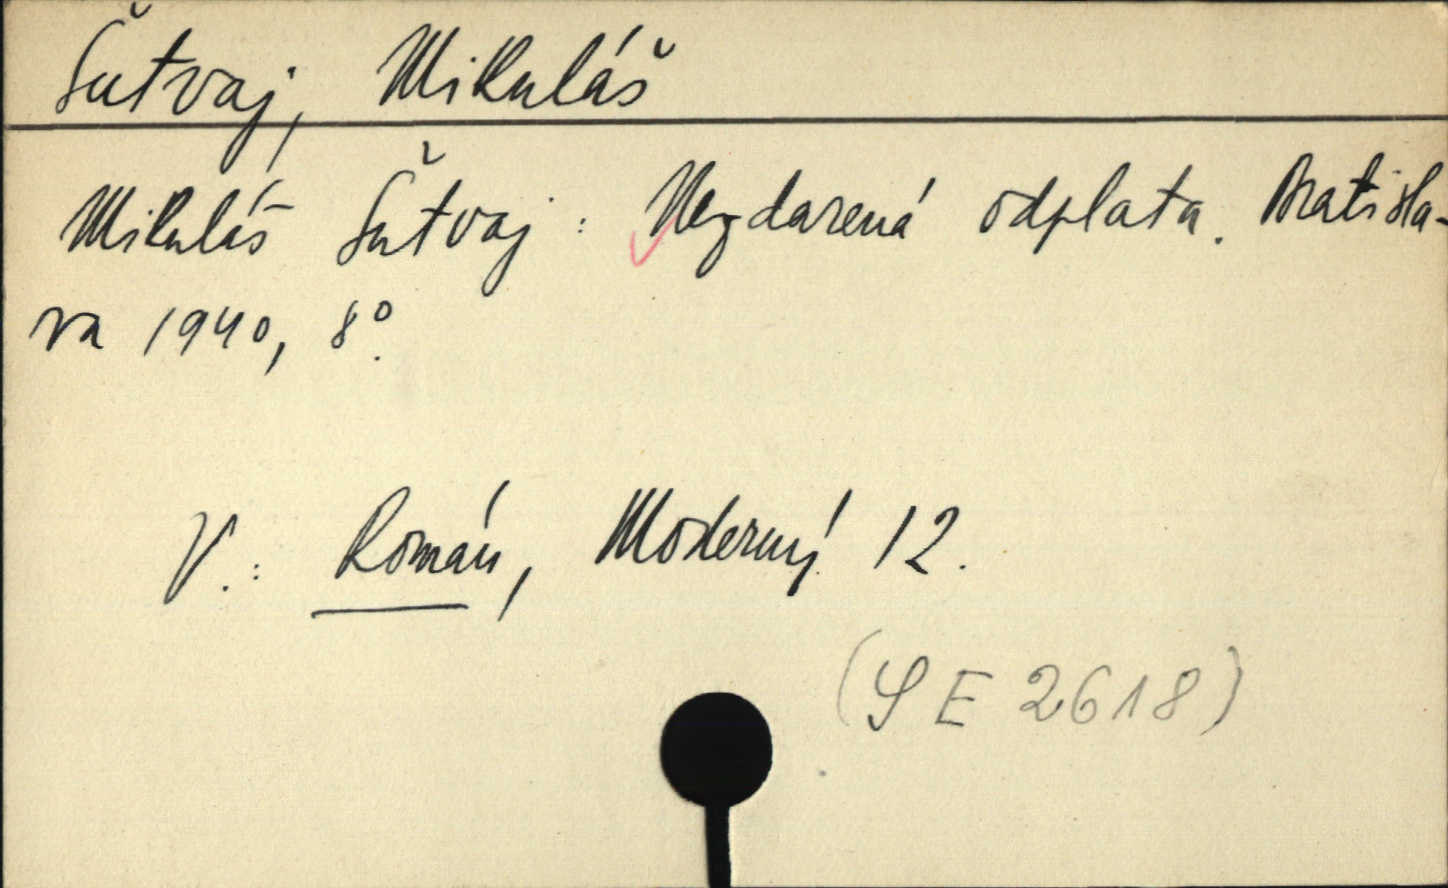 Šutvaj, Mikuláš
Mikuláš Šutvaj: Nezdarená odplata. Bratisla-
va 1940, 8°.
V.: Román, Moderný 12.
(SE 2618)